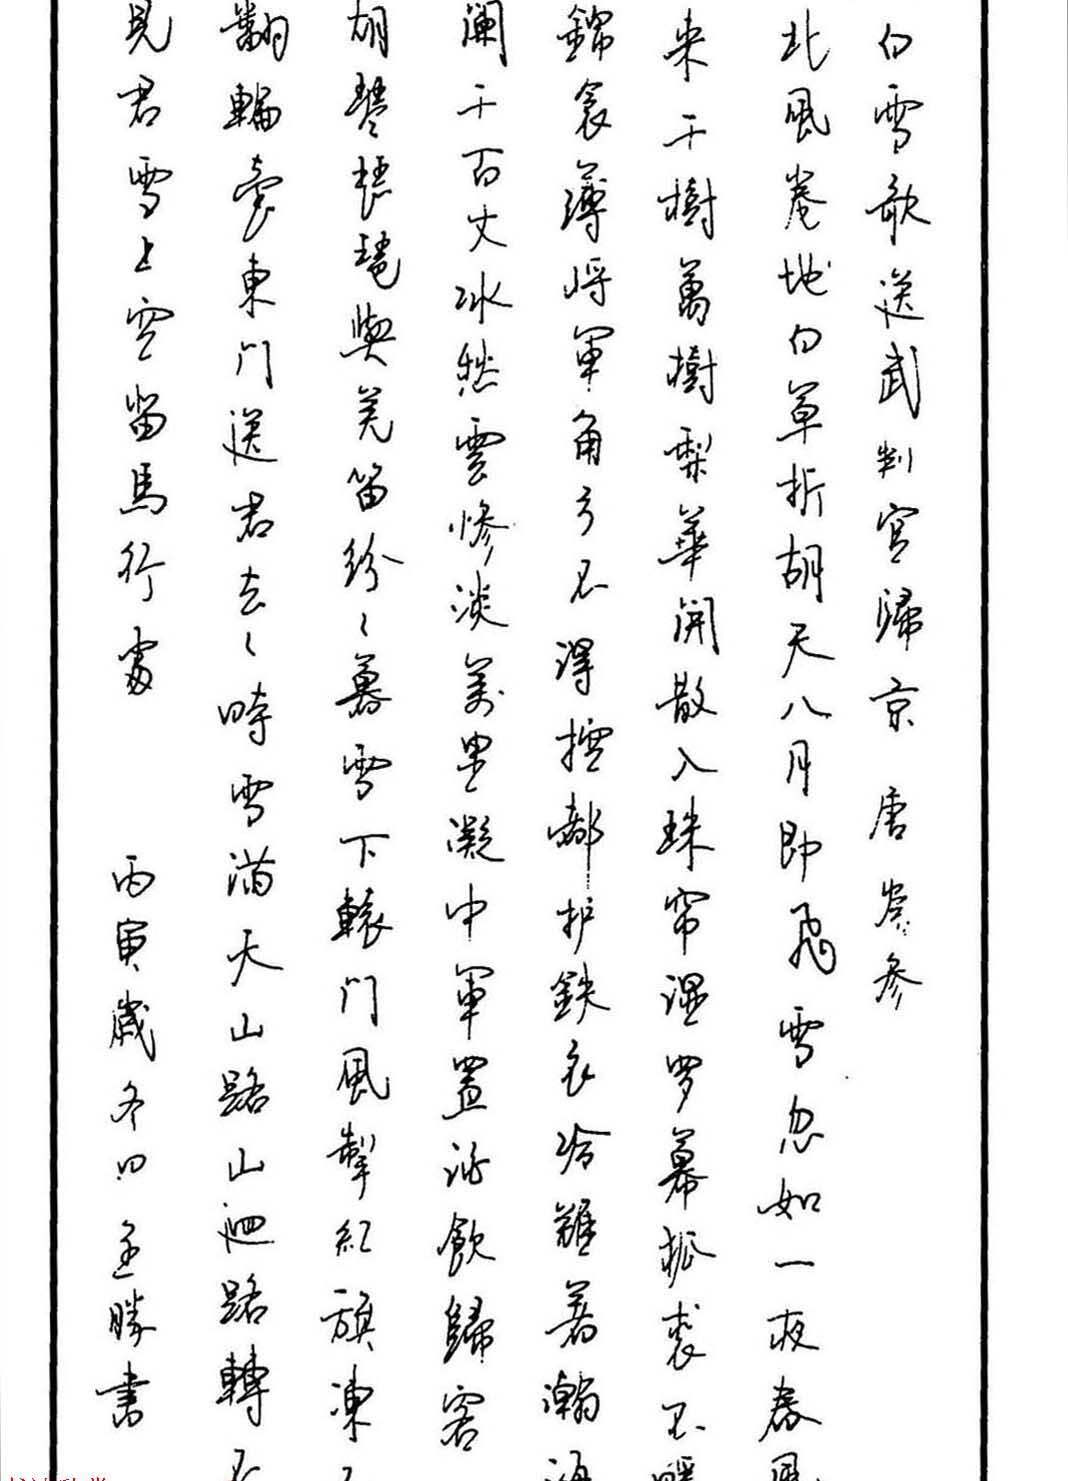 白雪歌送武判官歸京 唐 岑參
北風卷地白草折胡天八月即飛雪忽如一夜春風
來千樹萬樹梨華開散入珠帘濕罗幕狐裘不暖
錦衾薄將軍角弓不得控都护鉄衣冷難著瀚海
阑干百丈冰愁雲惨淡萬里凝中軍置酒飲歸客
胡琴琵琶與羌笛纷〻暮雪下轅門風掣紅旗凍不
翻輪臺東門送君去〻時雪滿天山路山迴路轉不
見君雪上空留馬行處
丙寅歲冬日 勝書